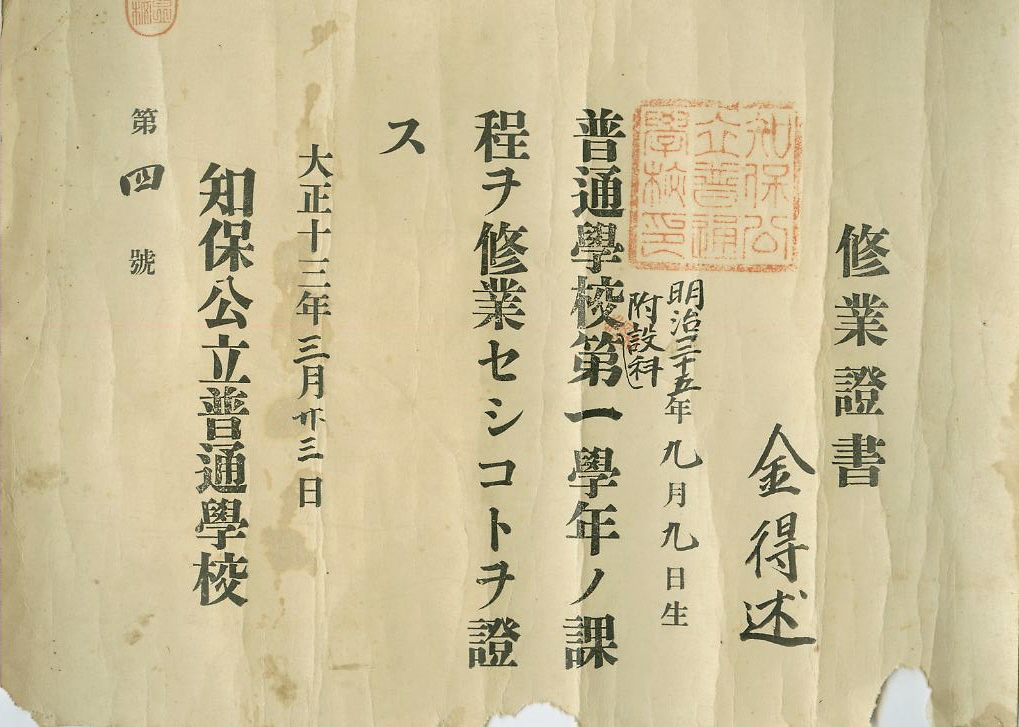 修業證書
金得述
知保公
立普通
學校印
明治三十五年九月九日生
附設科
普通學校第一學年ノ課
程ヲ修業セシコトヲ證
ス
大正十三年三月廿三日
知保公立普通學校
第四號